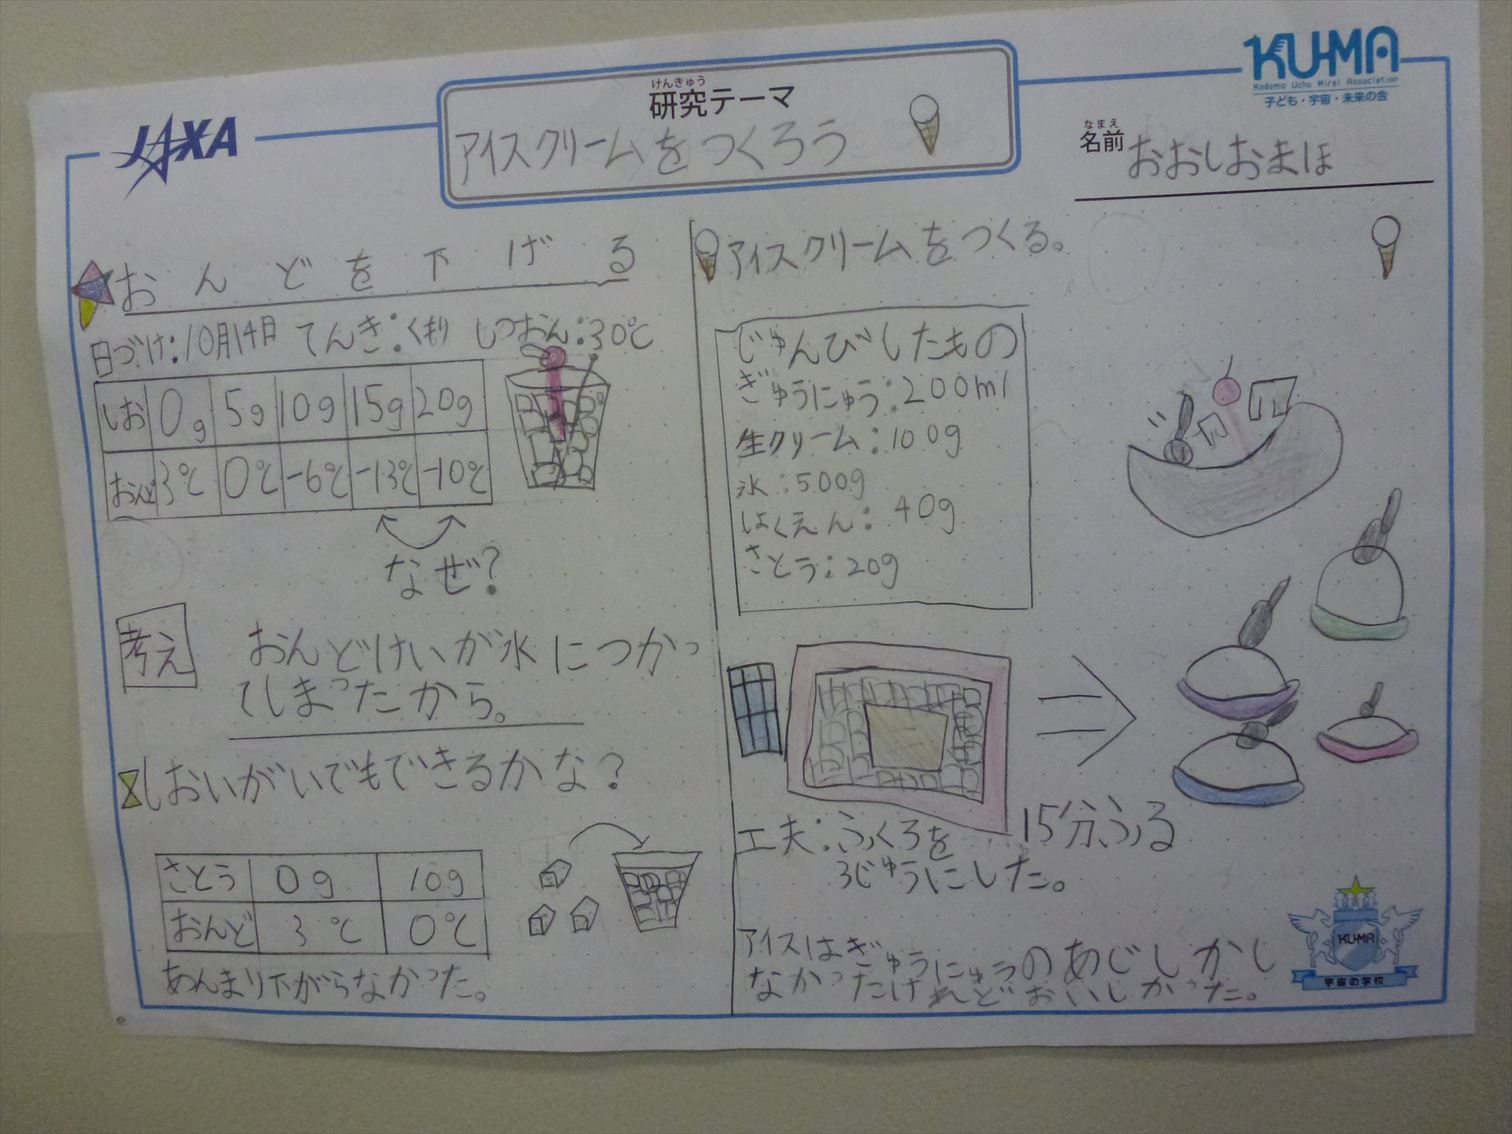 JAXA
けんきゅう
研究テーマ
アイスクリームをつくろう
KU-MA
Kodomo Uchu Mirai Association
子ども・宇宙・未来の会
なまえ
名前 おおしおまほ
おんどを下げる
日づけ:10月14日 てんき:くもり しつおん:30℃
しお 0g 5g 10g 15g 20g
おんど 3℃ 0℃ -6℃ -13℃ -10℃
なぜ?
考え
おんどけいが氷につかっ
てしまったから。
しおいがいでもできるかな?
さとう 0g 10g
おんど 3℃ 0℃
あんまり下がらなかった。
アイスクリームをつくる。
じゅんびしたもの
ぎゅうにゅう:200ml
生クリーム:100g
氷:500g
しょくえん:40g
さとう:20g
15分ふる
工夫:ふくろを
3じゅうにした。
アイスはぎゅうにゅうのあじしかし
なかったけれどおいしかった。
KU-MA
宇宙の学校